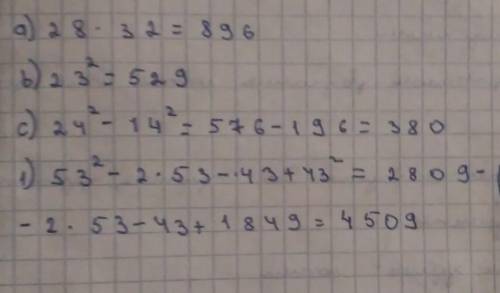 a) 28 · 32 = 896
b) 23² = 529
c) 24² - 14² = 576 - 196 = 380
1) 53² - 2 · 53 - 43 + 43² = 2809 -
- 2 · 53 - 43 + 1849 = 4509